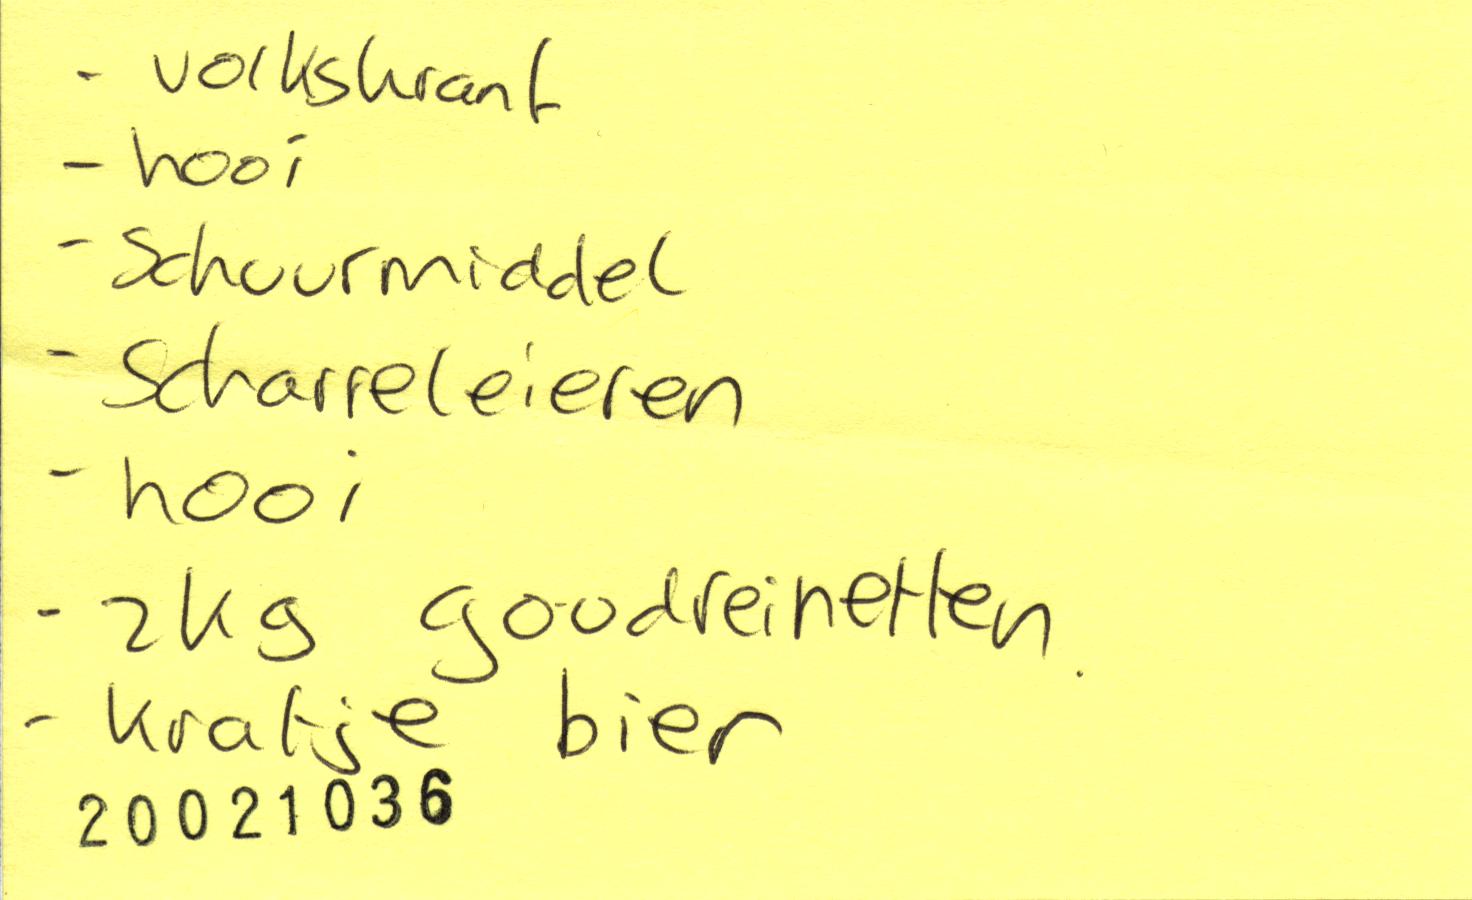 - volkskrant
- hooi
- Schuurmiddel
- Scharreleieren
- hooi
- 2kg goudreinetten.
- kratje bier
20021036